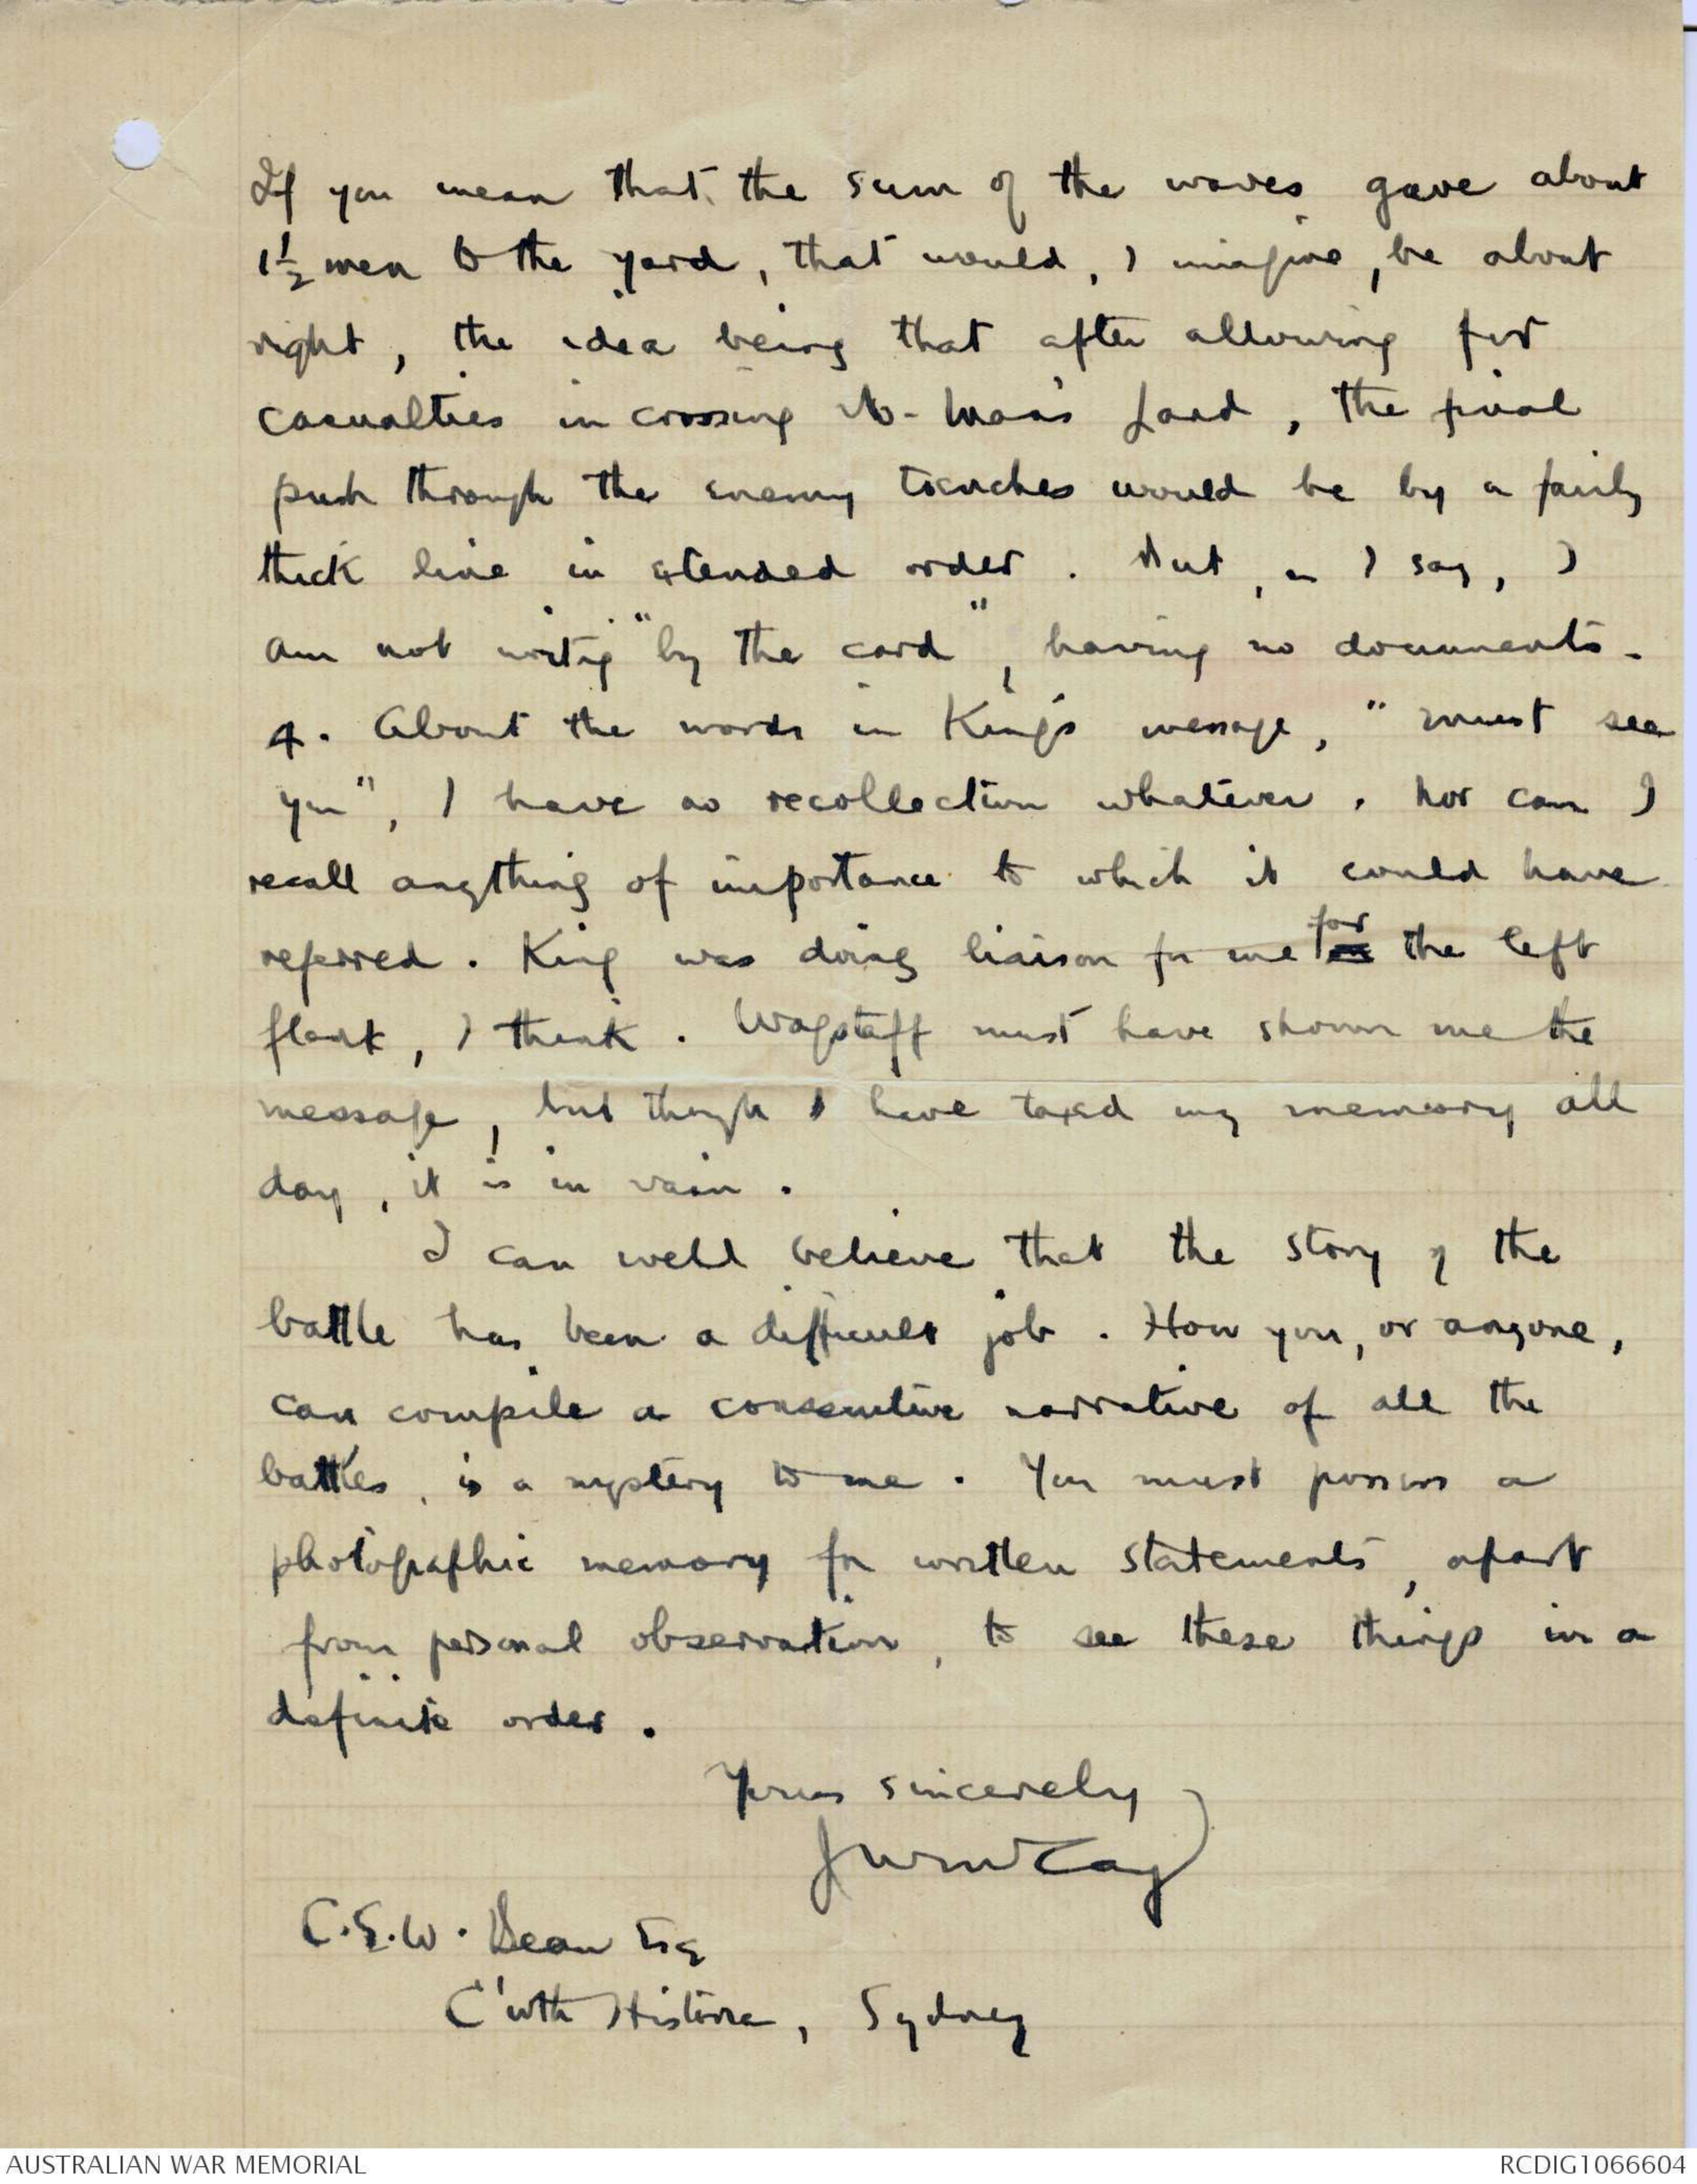 If you mean that the sum of the waves gave about
1½ men to the yard, that would, I imagine, be about
right, the idea being that after allowing for
casualties in crossing No-Man's Land, the final
push through the enemy trenches would be by a fairly
thick line in extended order. But, as I say, I
am not writing "by the card", having no documents.
4. About the words in King's message, "must see
you", I have no recollection whatever. Nor can I
recall anything of importance to which it could have
referred. King was doing liaison for me for the left
flank, I think. Wagstaff must have shown me the
message, but though I have taxed my memory all
day, it is in vain.
I can well believe that the story of the
battle has been a difficult job. How you, or anyone,
can compile a consecutive narrative of all the
battles, is a mystery to me. You must possess a
photographic memory for written statements, apart
from personal observation, to see these things in a
definite order.
Yours sincerely
J W McCay
C.E.W. Bean Esq
C'wth Historian, Sydney
AUSTRALIAN WAR MEMORIAL
RCDIG1066604